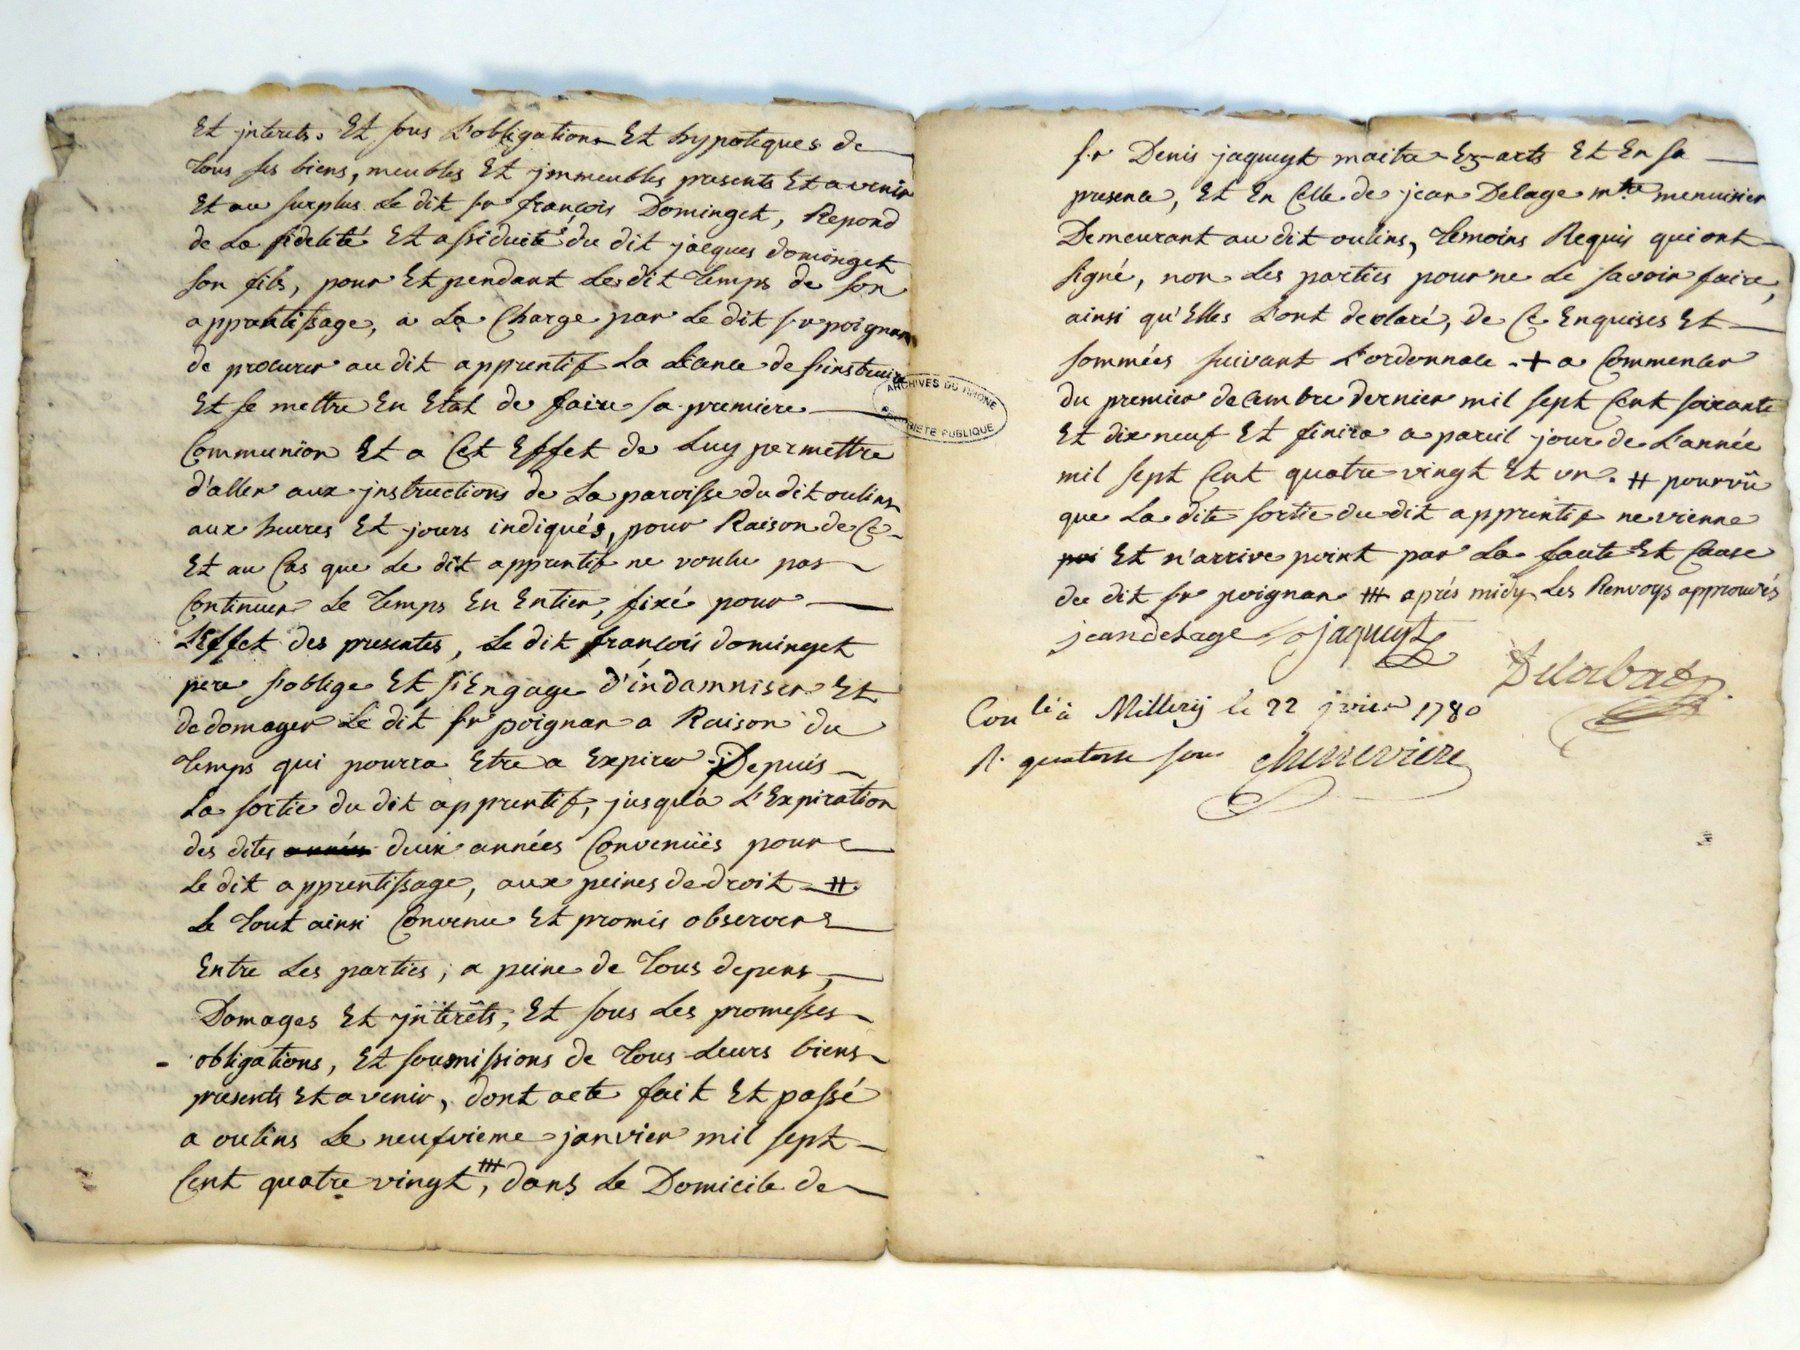 Et jnterets. Et sous L'obligations Et hypoteques de
Tous ses biens, meubles Et jmmeubles presents Et avenir
Et au surplus Le dit sr françois Dominget, Repond
de La fidelité Et assiduité du dit jacques dominget
son fils, pour Et pendant Le dit Temps de son
apprentissage, a La Charge par Le dit sr poignan
de procurer au dit apprentif La de s'instruire
Et se mettre En Etat de faire sa premiere
Communion Et a Cet Effet de Luy permettre
d'aller aux jnstructions de La paroisse du dit oulins
aux heures Et jours indiqués, pour Raison de Ce
Et au Cas que Le dit apprentif ne voulu pas
Continuer Le Temps En Entier, fixé pour
L'Effet des presentes, Le dit françois dominget
pere s'oblige Et s'Engage d'indamniser Et
dedomager Le dit sr poignan a Raison du
Temps qui pourra Etre a Expirer Depuis
La sortie du dit apprentif, jusqu'a L'Expiration
des dites années deux années Convenües pour
Le dit apprentissage, aux peines de droit #
Le Tout ainsi Convenu Et promis observer
Entre Les parties, a peine de Tous depens,
Domages Et jnterêts, Et sous Les promesses
obligations, Et soumissions de Tous Leurs biens
presents Et avenir, dont acte fait Et passé
a oulins Le neufvieme janvier mil sept
Cent quatre vingt, dans Le Domicile de
ARCHIVES DU RHONE
PROPRIETE PUBLIQUE
sr Denis jaqueyt maitre Ez-arts Et En sa
presence, Et En Celle de jean Delage mtre menuisier
Demeurant au dit oulins, Temoins Requis qui ont
signé, non Les parties pour ne Le savoir faire,
ainsi qu'Elles L'ont declaré, de Ce Enquises Et
sommées suivant L'ordonnace. + a Commencer
du premier decembre dernier mil sept Cent soixante
Et dix neuf Et finira a pareil jour de L'année
mil sept Cent quatre vingt Et un. # pourvü
que La dite sortie du dit apprentif ne vienne
Et n'arrive point par La faute Et Cause
du dit sr poignan après midy Les Renvoys approuvés
jean delage jaqueyt
Con le à Millery le 22 jvier 1780
R. quatorze sous chenevier